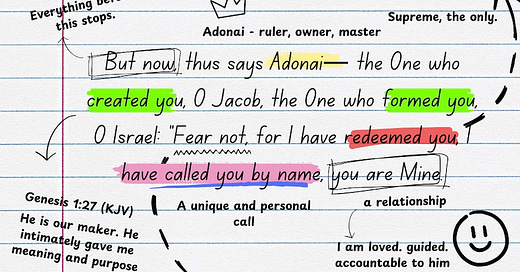 Everything before
this stops.
Supreme, the only.
Adonai - ruler, owner, master
But now, thus says Adonai— the One who
created you, O Jacob, the One who formed you,
O Israel: "Fear not, for I have redeemed you, I
have called you by name, you are Mine.
Genesis 1:27 (KJV)
He is our maker. He
intimately gave me
meaning and purpose
A unique and personal
call
a relationship
I am loved. guided.
accountable to him